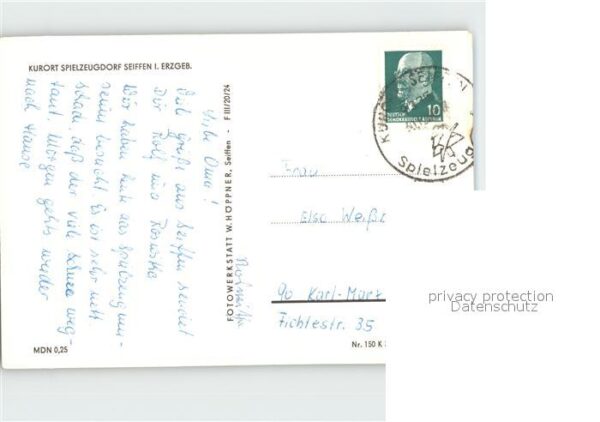 KURORT SPIELZEUGDORF SEIFFEN I. ERZGEB.
Liebe Oma!
Viele Grüße aus Seiffen sendet
Dir Rolf und Roswitha
Wir haben heute das Spielzeugmu-
seum besucht. Es ist sehr nett
schade, daß der viele Schnee weg-
taut. Morgen gehts wieder
nach Hause
Roswitha
MDN 0,25
FOTOWERKSTATT W. HÖPPNER, Seiffen - F III/20/24
10
DEUTSCHE
DEMOKRATISCHE REPUBLIK
KURORT SEIFFEN
Spielzeug
Frau
Else Weißr
90 Karl-Marx
Fichtestr. 35
Nr. 150 K
privacy protection
Datenschutz